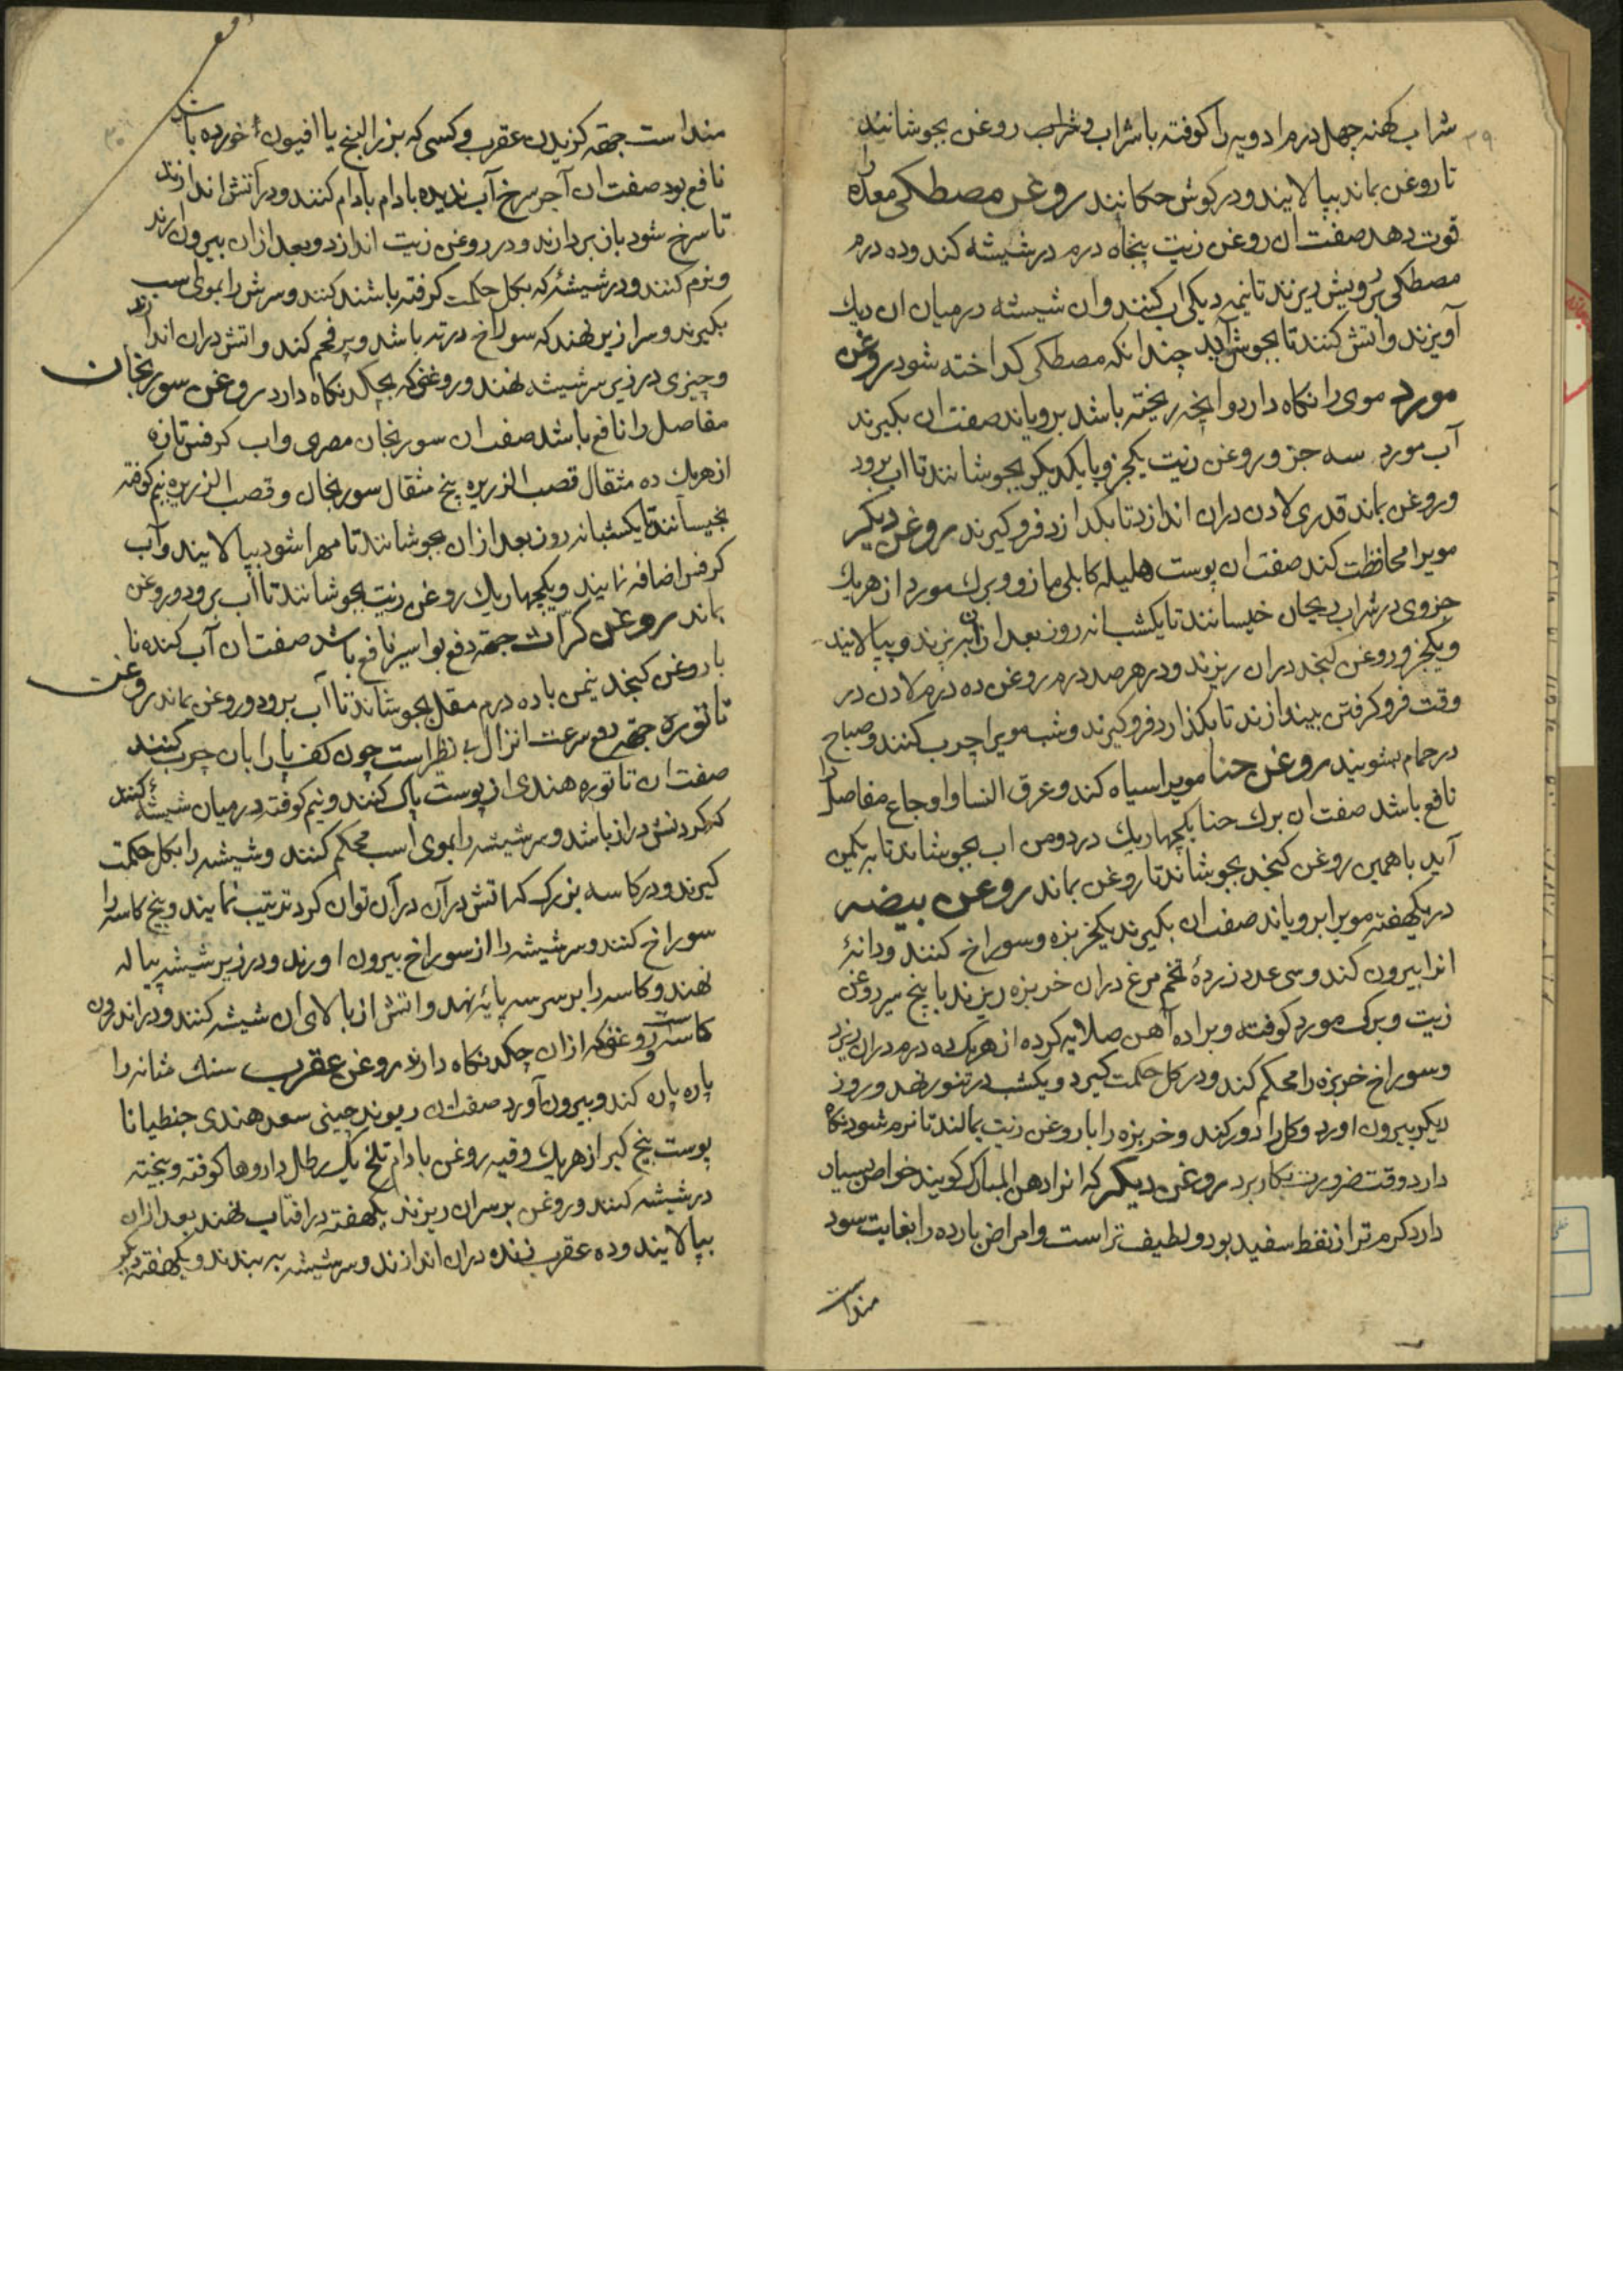 ۲۹
شراب کهنه چهل درم ادویه را کوفته با شراب و شراب روغن بجوشانند
تا روغن بماند بپالایند و در کوش حکانند روغن مصطکی معده را
قوت دهد صفت ان روغن زیت پنجاه درم در شیشه کند و ده درم
مصطکی برویش ریزند تا نیمه دیکی اب کنند و ان شیشه در میان ان دیك
آویزند و اتش کنند تا بجوش آید چندانکه مصطکی کداخته شود روغن
مورد موی را نکاه دارد و انچه ریخته باشد برویاند صفت ان بکیرند
آب مورد سه جز و روغن زیت یکجز و با یکدیکر بجوشانند تا اب برود
و روغن بماند قدری لادن دران اندازد تا بکدازد فرو کیرند روغن دیکر
مویرا محافظت کند صفت ان پوست هلیله کابلی مازو و برك مورد از هریك
جزوی در شراب ریحان خیسانند تا یکشبانه روز بعد ازان بپزند و بپالایند
و یکجزو روغن کنجد دران ریزند و در هر صد درم روغن ده درم لادن در
وقت فرو کرفتن بیندازند تا بکذارد فرو کیرند و شب مویرا چرب کنند و صباح
در حمام بشویند روغن حنا مویرا سیاه کند و عرق النسا و اوجاع مفاصل را
نافع باشد صفت ان برك حنا یکچهاریك در دو من اب بجوشاند تا به یکمن
آید با همین روغن کنجد بجوشاند تا روغن بماند روغن بیضه
در یکهفته مویرا برویاند صفت ان بکیرند یکخربزه و سوراخ کنند و دانهٔ
انرا بیرون کند و سی عدد زردهٔ تخم مرغ دران خربزه ریزند با پنج سیر روغن
زیت و برك مورد کوفته و براده آهن صلایه کرده از هریك ده درم دران ریزد
و سوراخ خربزه را محکم کند و در کل حکمت کیرد و یکشب در تنور نهد و روز
دیکر بیرون اورد و کل را دور کند و خربزه را با روغن زیت بمالند تا نرم شود نکاه
دارد وقت ضرورت بکار برد روغن دیکر که انرا دهن المبارك کویند خواص بسیار
دارد کرم تر از نفط سفید بود و لطیف تر است و امراض بارده را بغایت سود
منداست
منداست جهة کزیدن عقرب و کسی که بزر البنج یا افیون خورده باشد
نافع بود صفت ان آجر سرخ آب ندیده بادام بادام کنند و در آتش اندازند
تا سرخ شود باز بردارند و در روغن زیت اندازد و بعد ازان بیرون ارند
و نرم کنند و در شیشهٔ که بکل حکمت کرفته باشند کنند و سرش را بموی اسب
بکیرند و سرازیر نهند که سوراخ در ته باشد و پر فحم کند و اتش دران اندازند
و چیزی در زیر سر شیشه نهند و روغنی که بچکد نکاه دارد روغن سورنجان
مفاصل را نافع باشد صفت ان سورنجان مصری و اب کرفس تازه
از هریك ده مثقال قصب الزریره پنج مثقال سورنجان و قصب الزریره نیم کوفته
بخیسانند تا یکشبانه روز بعد ازان بجوشانند تا مهرا شود بپالایند و آب
کرفس اضافه نمایند و یکچهاریك روغن زیت بجوشانند تا آب برود و روغن
بماند روغن کراث جهة دفع بواسیر نافع باشد صفت ان آب کندنا
با روغن کنجد نیمن با ده درم مقل بجوشاند تا آب برود و روغن بماند روغن
تاتوره جهة دفع سرعت انزال بی نظیر است چون کف پا را بان چرب کنند
صفت ان تاتوره هندی از پوست پاك کنند و نیم کوفته در میان شیشهٔ کنند
که کردنش دراز باشد و سر شیشه را بموی اسب محکم کنند و شیشه را بکل حکمت
کیرند و در کاسه بزرك که اتش در آن در آن توان کرد ترتیب نمایند و بیخ کاسه را
سوراخ کنند و سر شیشه را از سوراخ بیرون اورند و در زیر شیشه پیاله
نهند و کاسه را بر سر سه پایه نهد و اتش از بالای ان شیشه کنند و در اندرون
کاسه و روغنی که ازان چکد نکاه دارند روغن عقرب سنك مثانه را
پاره پاره کند و بیرون آورد صفت ان ریوند چینی سعد هندی جنطیانا
پوست بیخ کبر از هریك وقیه روغن بادام تلخ یك رطل داروها کوفته و بیخته
در شیشه کنند و روغن بر سران ریزند یکهفته در افتاب نهند بعد ازان
بپالایند و ده عقرب زنده دران اندازند و سر شیشه به بندند و یکهفته دیکر